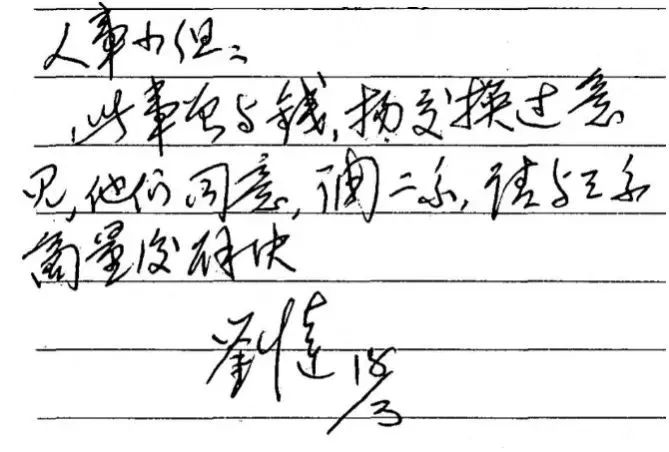 人事小组：
此事曾与钱,杨交换过意
见,他们同意,调二系,请与三系
商量后解决
劉達 18/3